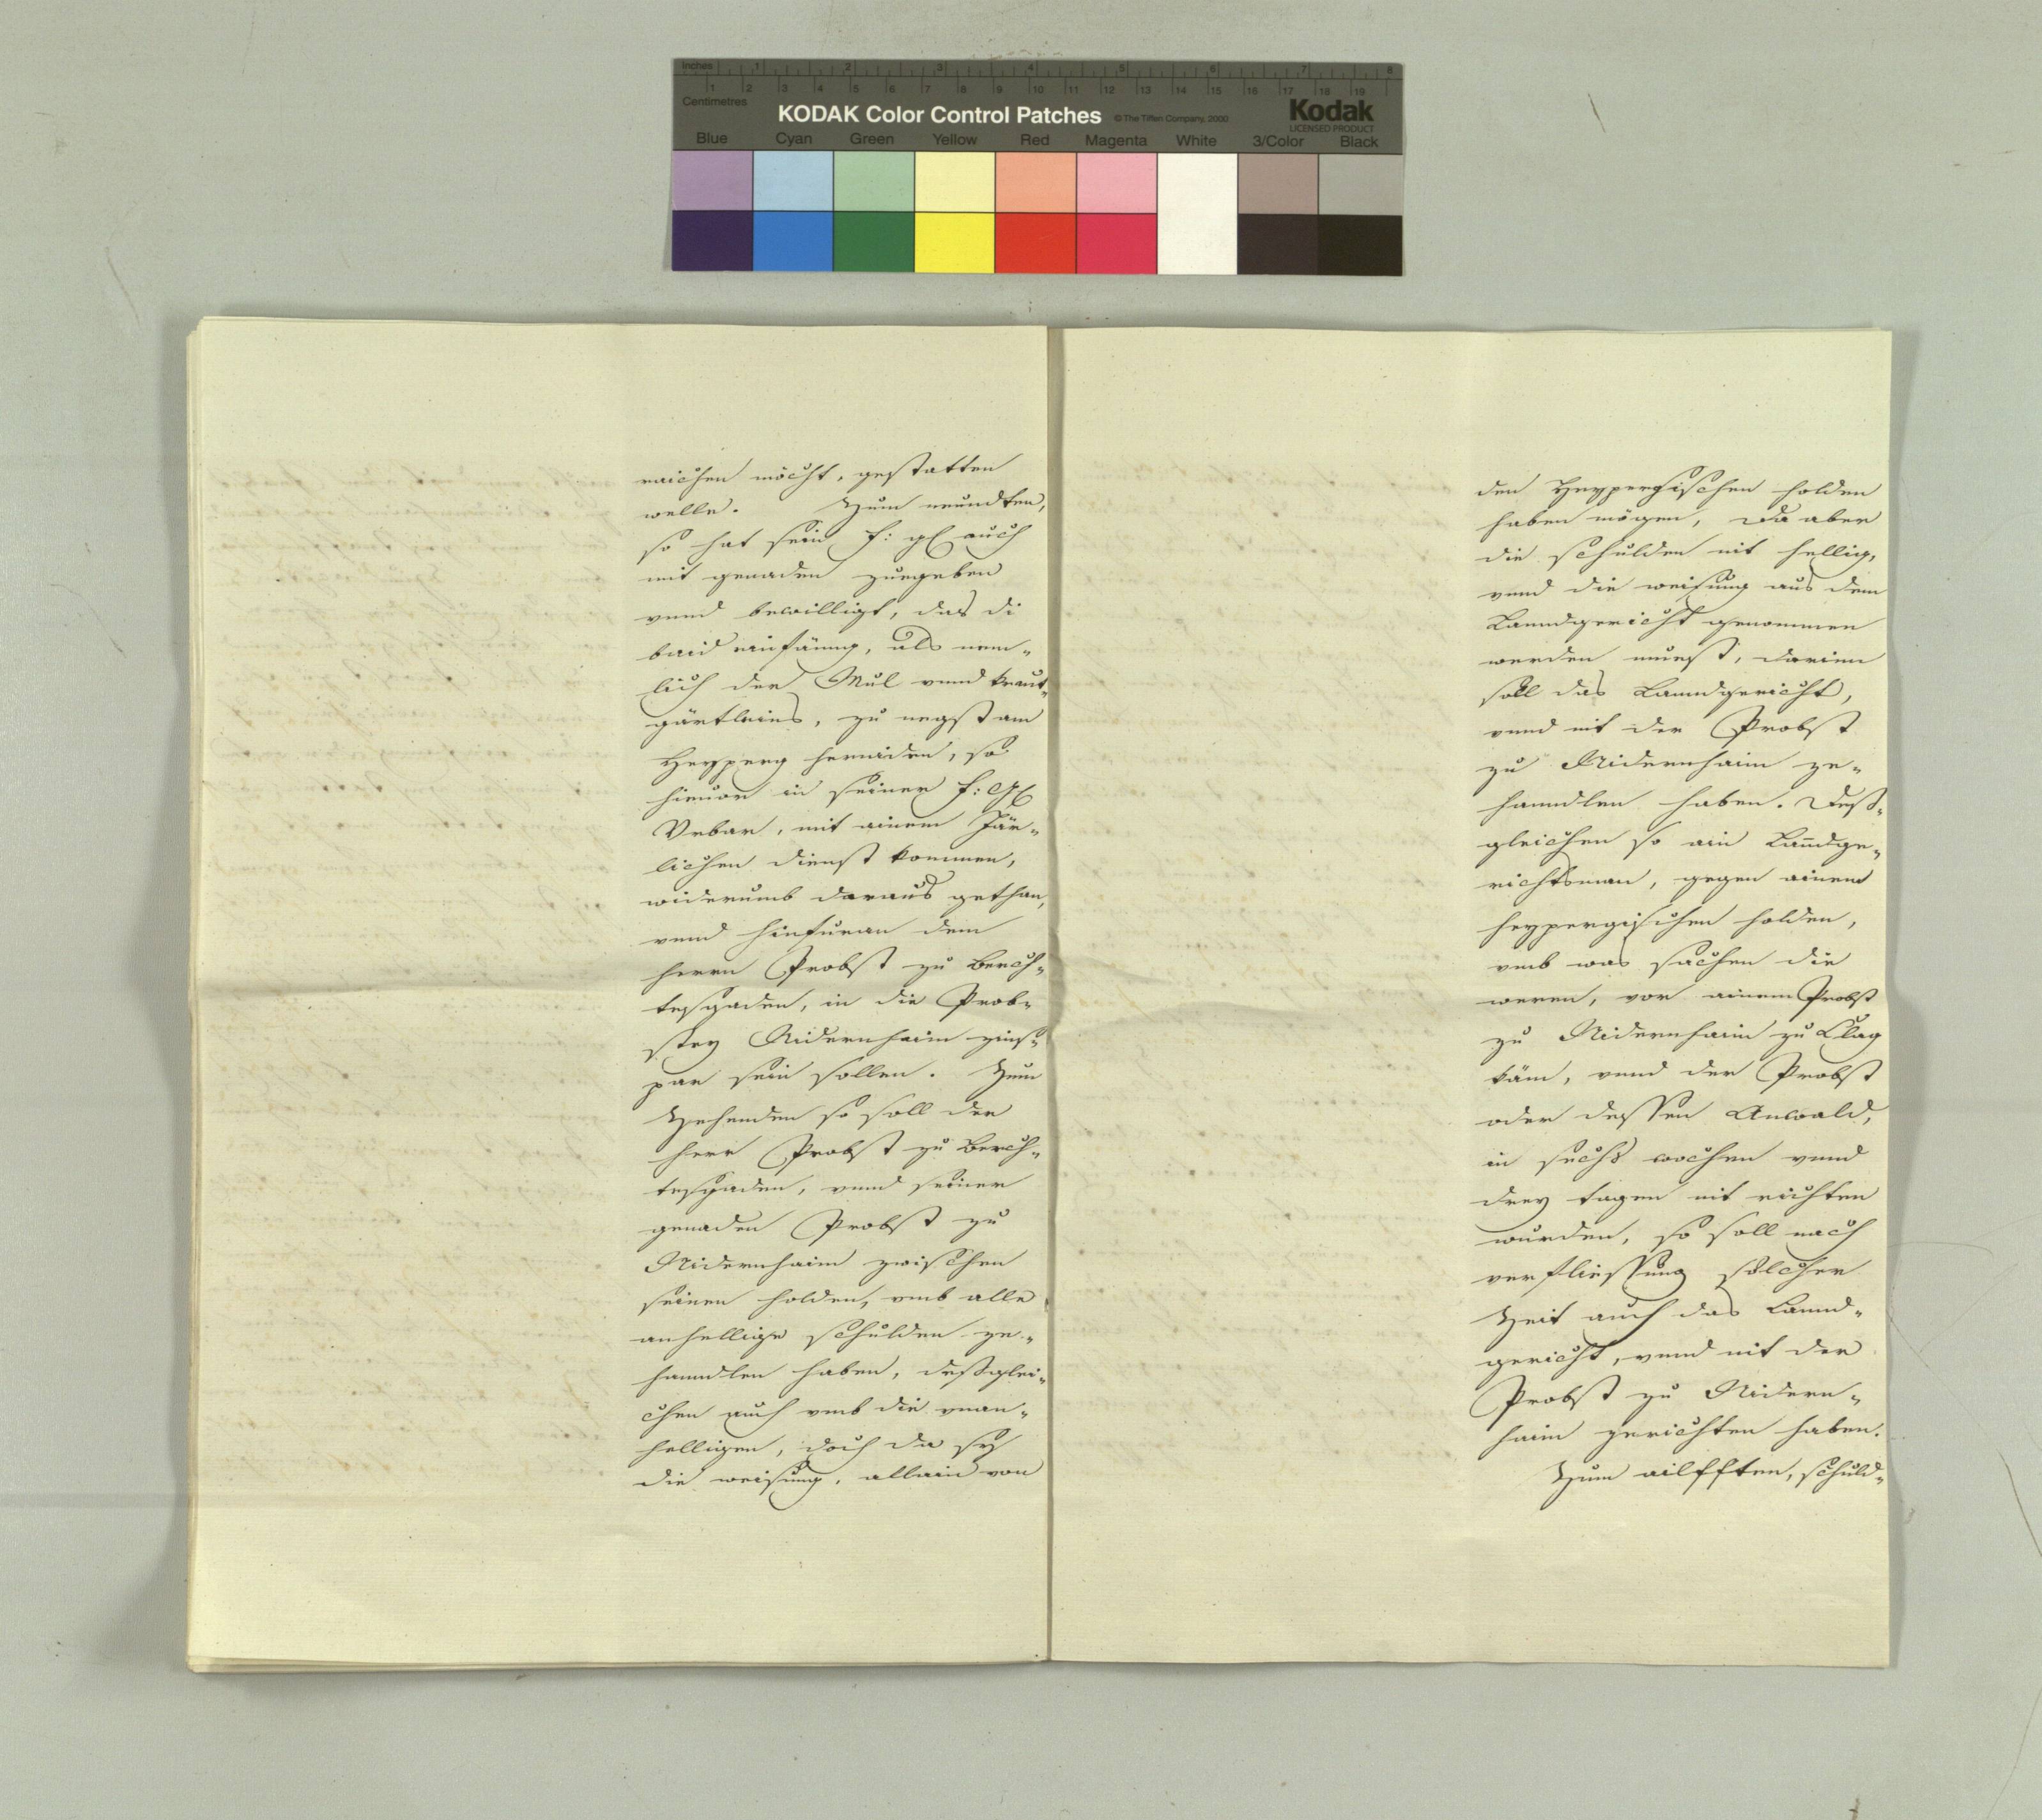 Inches 1 2 3 4 5 6 7 8
1 2 3 4 5 6 7 8 9 10 11 12 13 14 15 16 17 18 19
Centimetres
KODAK Color Control Patches © The Tiffen Company, 2000 Kodak
LICENSED PRODUCT
Blue Cyan Green Yellow Red Magenta White 3/Color Black
raichen möcht, gestatten
welle. Zum neundten,
so hat sein f: gl auch
mit genaden zuegeben
vnnd bewilligt, das di
baid ainfäng, als nem-
lich der Mül vnnd kraut-
gärtleins, zu negst am
Heyperg herniden, so
hieuor in seiner f: Gl
Vrbar, mit ainem Jär-
lichen dienst kommen,
widerumb daraus gethan,
vnnd hinfuran dem
herrn Probst zu Berch-
tesgaden, in die Prob-
stey Nidernhaim zinß-
par sein sollen. Zum
Zehenden so soll der
herr Probst zu Berch-
tesgaden, vnnd seiner
genaden Probst zu
Nidernhaim zwischen
seinen holden, vmb alle
anhellige schulden ze-
hanndlen haben, deßglei-
chen auch vmb die vnan-
helligen, doch da sy
die weisung, allain von
den Heypergischen holden
haben mögen, Da aber
die schulden nit hellig,
vnnd die weisung aus dem
Lanndgericht genommen
werden muest, darinn
soll das Lanndgericht,
vnnd nit der Probst
zu Nidernhaim ze-
hanndlen haben. Deß-
gleichen so ain Lanndge-
richtsman, gegen ainem
heypergischen holden,
vmb was sachen die
weren, vor ainem Probst
zu Nidernhaim zu Clag
käm, vnnd der Probst
oder dessen Anwald,
in sechs wochen vnnd
drey tagen nit richten
wurden, so soll nach
verfliessung solcher
Zeit auch das Lannd-
gericht, vnnd nit der
Probst zu Nidern-
haim zerichten haben.
Zum ailfften, schuld-